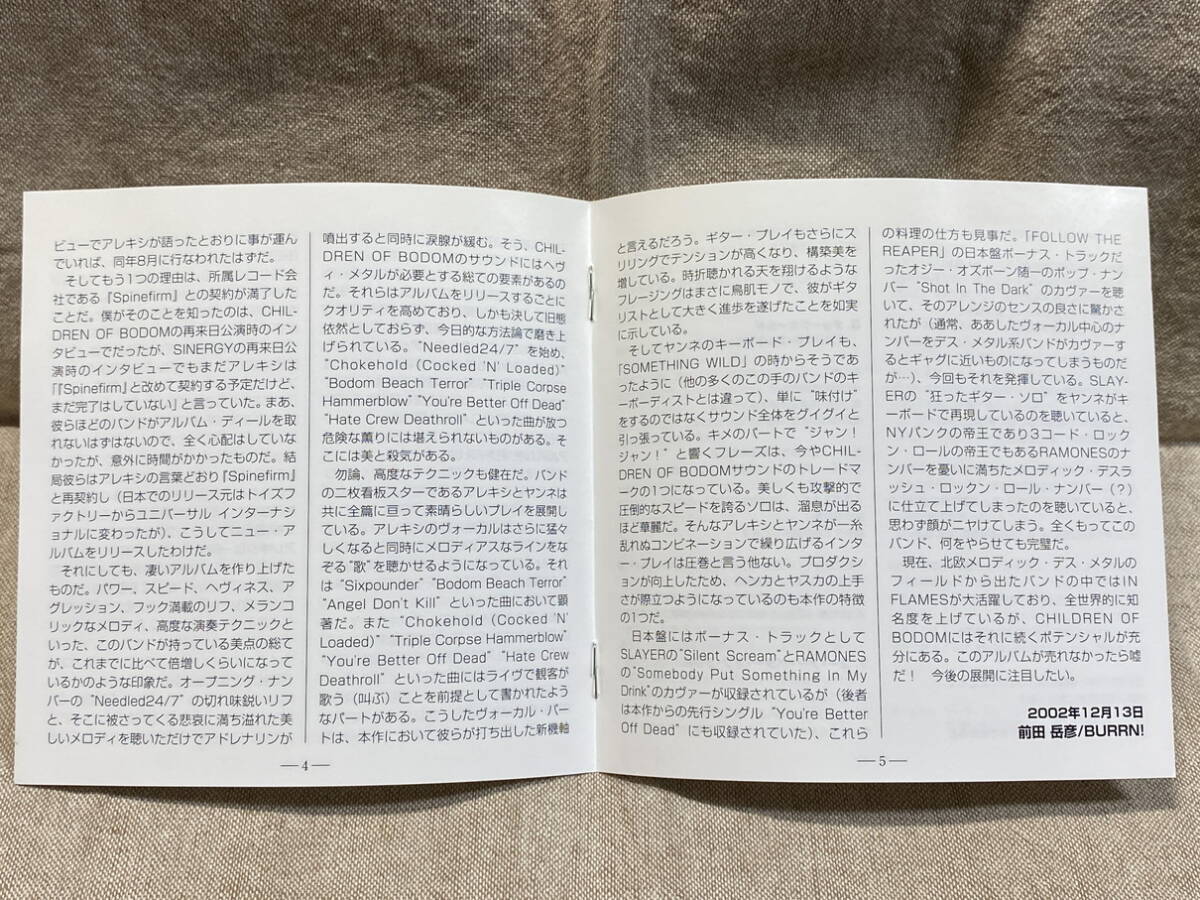 ビューでアレキシが語ったとおりに事が運ん
でいれば、同年8月に行なわれたはずだ。
　そしてもう1つの理由は、所属レコード会
社である『Spinefirm』との契約が満了した
ことだ。僕がそのことを知ったのは、CHIL-
DREN OF BODOMの再来日公演時のイン
タビューでだったが、SINERGYの再来日公
演時のインタビューでもまだアレキシは
「『Spinefirm』と改めて契約する予定だけど、
まだ完了はしていない」と言っていた。まあ、
彼らほどのバンドがアルバム・ディールを取
れないはずはないので、全く心配はしていな
かったが、意外に時間がかかったものだ。結
局彼らはアレキシの言葉どおり『Spinefirm』
と再契約し（日本でのリリース元はトイズフ
ァクトリーからユニバーサル インターナシ
ョナルに変わったが）、こうしてニュー・ア
ルバムをリリースしたわけだ。
　それにしても、凄いアルバムを作り上げた
ものだ。パワー、スピード、ヘヴィネス、ア
グレッション、フック満載のリフ、メランコ
リックなメロディ、高度な演奏テクニックと
いった、このバンドが持っている美点の総て
が、これまでに比べて倍増しくらいになって
いるかのような印象だ。オープニング・ナン
バーの “Needled24/7” の切れ味鋭いリフ
と、そこに被さってくる悲哀に満ち溢れた美
しいメロディを聴いただけでアドレナリンが
—4—
噴出すると同時に涙腺が緩む。そう、CHIL-
DREN OF BODOMのサウンドにはヘヴ
ィ・メタルが必要とする総ての要素があるの
だ。それらはアルバムをリリースするごとに
クオリティを高めており、しかも決して旧態
依然としておらず、今日的な方法論で磨き上
げられている。“Needled24/7” を始め、
“Chokehold (Cocked 'N' Loaded)”
“Bodom Beach Terror” “Triple Corpse
Hammerblow” “You're Better Off Dead”
“Hate Crew Deathroll” といった曲が放つ
危険な薫りには堪えられないものがある。そ
こには美と殺気がある。
　勿論、高度なテクニックも健在だ。バンド
の二枚看板スターであるアレキシとヤンネが
共に全篇に亘って素晴らしいプレイを展開し
ている。アレキシのヴォーカルはさらに猛々
しくなると同時にメロディアスなラインをな
ぞる “歌” を聴かせるようになっている。それ
は “Sixpounder” “Bodom Beach Terror”
“Angel Don't Kill” といった曲において顕
著だ。また “Chokehold (Cocked 'N'
Loaded)” “Triple Corpse Hammerblow”
“You're Better Off Dead” “Hate Crew
Deathroll” といった曲にはライヴで観客が
歌う（叫ぶ）ことを前提として書かれたよう
なパートがある。こうしたヴォーカル・パー
トは、本作において彼らが打ち出した新機軸
と言えるだろう。ギター・プレイもさらにス
リリングでテンションが高くなり、構築美を
増している。時折聴かれる天を翔けるような
フレージングはまさに鳥肌モノで、彼がギタ
リストとして大きく進歩を遂げたことを如実
に示している。
　そしてヤンネのキーボード・プレイも、
「SOMETHING WILD」の時からそうであ
ったように（他の多くのこの手のバンドのキ
ーボーディストとは違って）、単に “味付け”
をするのではなくサウンド全体をグイグイと
引っ張っている。キメのパートで “ジャン！
ジャン！” と響くフレーズは、今やCHIL-
DREN OF BODOMサウンドのトレードマ
ークの1つになっている。美しくも攻撃的で
圧倒的なスピードを誇るソロは、溜息が出る
ほど華麗だ。そんなアレキシとヤンネが一糸
乱れぬコンビネーションで繰り広げるインタ
ー・プレイは圧巻と言う他ない。プロダクシ
ョンが向上したため、ヘンカとヤスカの上手
さが際立つようになっているのも本作の特徴
の1つだ。
　日本盤にはボーナス・トラックとして
SLAYERの“Silent Scream”とRAMONES
の“Somebody Put Something In My
Drink”のカヴァーが収録されているが（後者
は本作からの先行シングル “You're Better
Off Dead” にも収録されていた）、これら
—5—
の料理の仕方も見事だ。「FOLLOW THE
REAPER」の日本盤ボーナス・トラックだ
ったオジー・オズボーン随一のポップ・ナン
バー “Shot In The Dark” のカヴァーを聴
いて、そのアレンジのセンスの良さに驚かさ
れたが（通常、ああしたヴォーカル中心のナ
ンバーをデス・メタル系バンドがカヴァーす
るとギャグに近いものになってしまうものだ
が…）、今回もそれを発揮している。SLAY-
ERの “狂ったギター・ソロ” をヤンネがキ
ーボードで再現しているのを聴いていると、
NYパンクの帝王であり3コード・ロック
ン・ロールの帝王でもあるRAMONESのナ
ンバーを憂いに満ちたメロディック・デスラ
ッシュ・ロックン・ロール・ナンバー（？）
に仕立て上げてしまったのを聴いていると、
思わず顔がニヤけてしまう。全くもってこの
バンド、何をやらせても完璧だ。
　現在、北欧メロディック・デス・メタルの
フィールドから出たバンドの中ではIN
FLAMESが大活躍しており、全世界的に知
名度を上げているが、CHILDREN OF
BODOMにはそれに続くポテンシャルが充
分にある。このアルバムが売れなかったら嘘
だ！　今後の展開に注目したい。
2002年12月13日
前田 岳彦/BURRN!